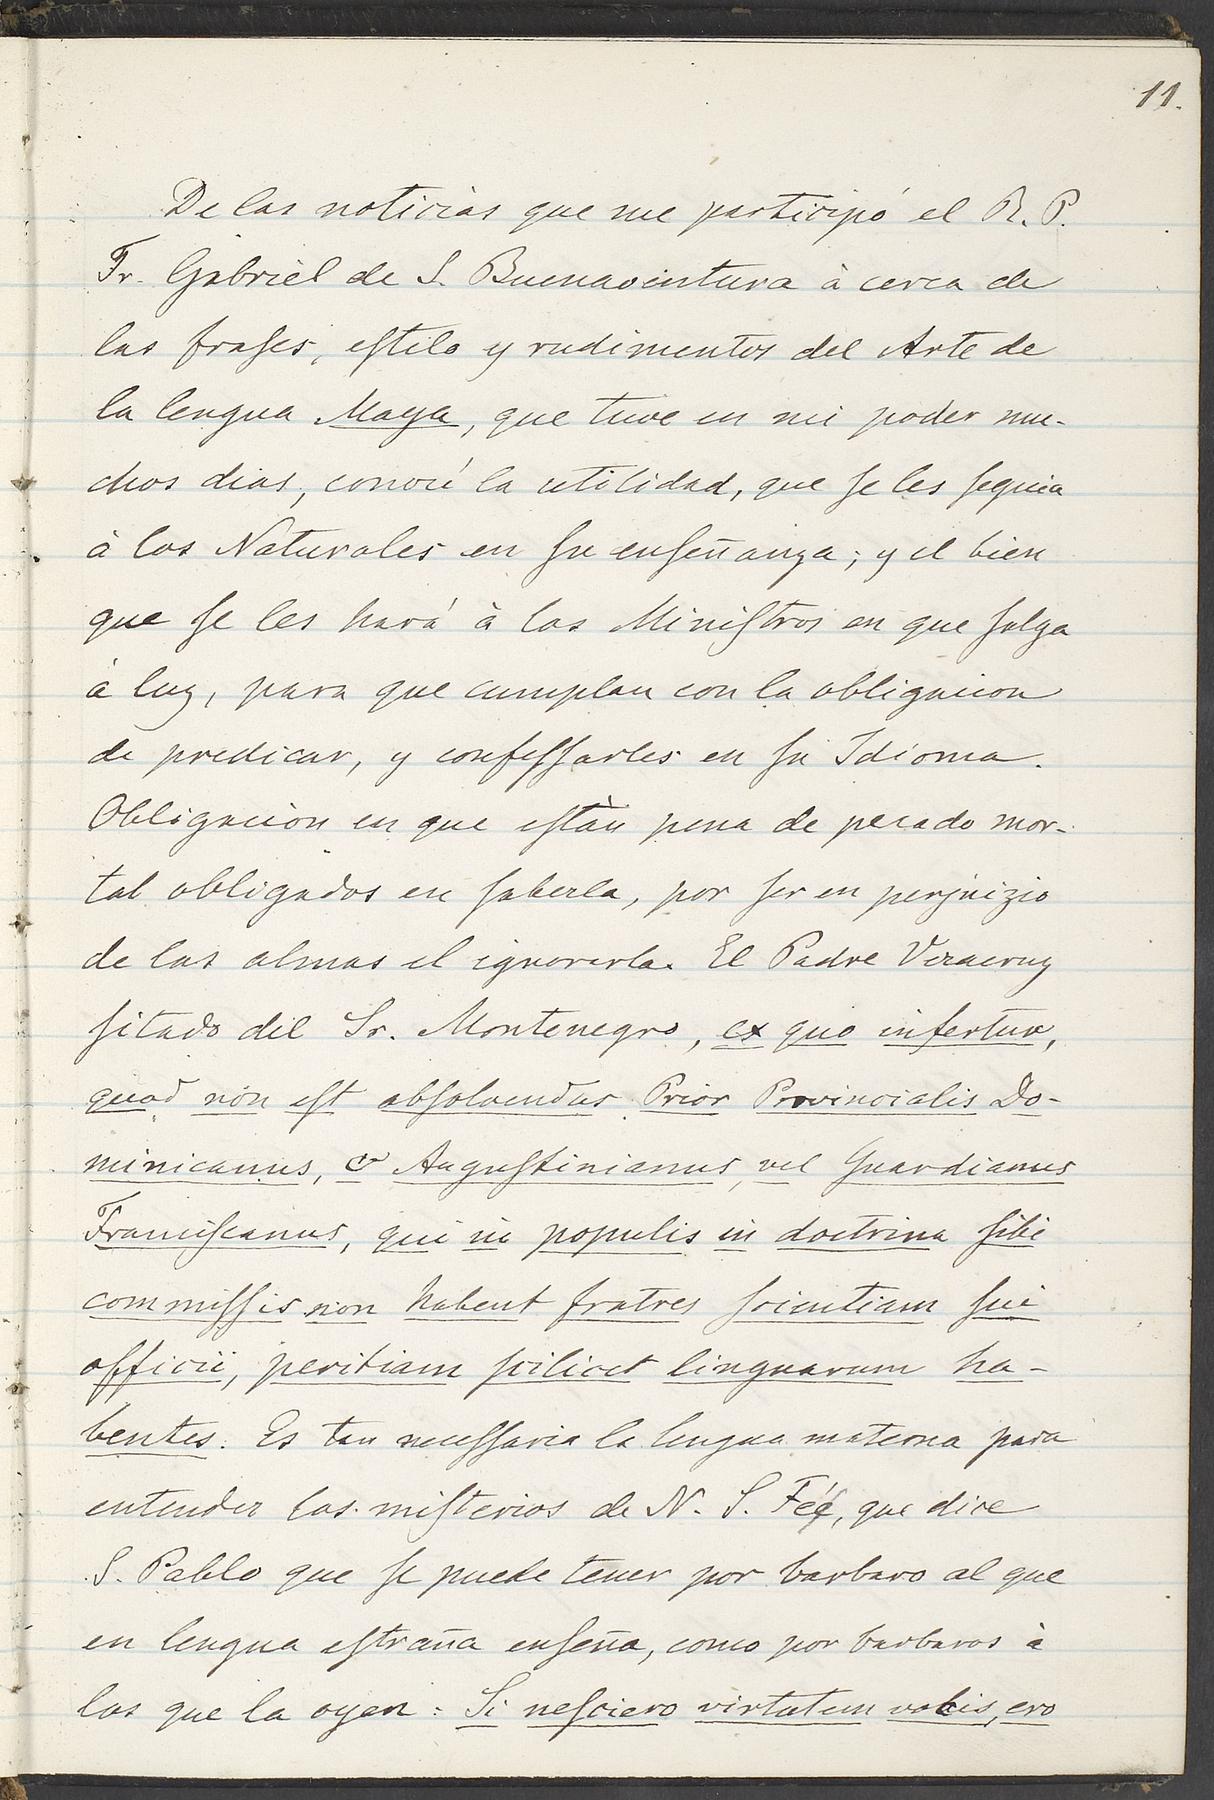 11.
De las noticias que me participó el R. P.
Fr. Gabriel de S. Buenaventura à cerca de
las fraſes, eſtilo y rudimentos del Arte de
la lengua Maya, que tuve en mi poder mu-
chos dias, conocí la utilidad, que ſe les ſeguia
à los Naturales en ſu enſeñanza; y el bien
que ſe les hará à los Miniſtros en que ſalga
à luz, para que cumplan con la obligacion
de predicar, y confeſſarles en ſu Idioma.
Obligacion en que eſtàn pena de pecado mor-
tal obligados en ſaberla, por ſer en perjuizio
de las almas el ignorarla. El Padre Veracruz
ſitado del Sr. Montenegro, ex quo infertur,
quod non eſt abſolvendus Prior Provincialis Do-
minicanus, & Auguſtinianus, vel Guardianus
Franciſcanus, qui in populis in doctrina ſibi
commiſſis non habent fratres ſcientiam ſui
officii, peritiam ſcilicet linguarum ha-
bentes. Es tan neceſſaria la lengua materna para
entender los miſterios de N. S. Féé, que dice
S. Pablo que ſe puede tener por barbaro al que
en lengua eſtraña enſeña, como por barbaros à
los que la oyen: Si neſciero virtutem vocis, ero